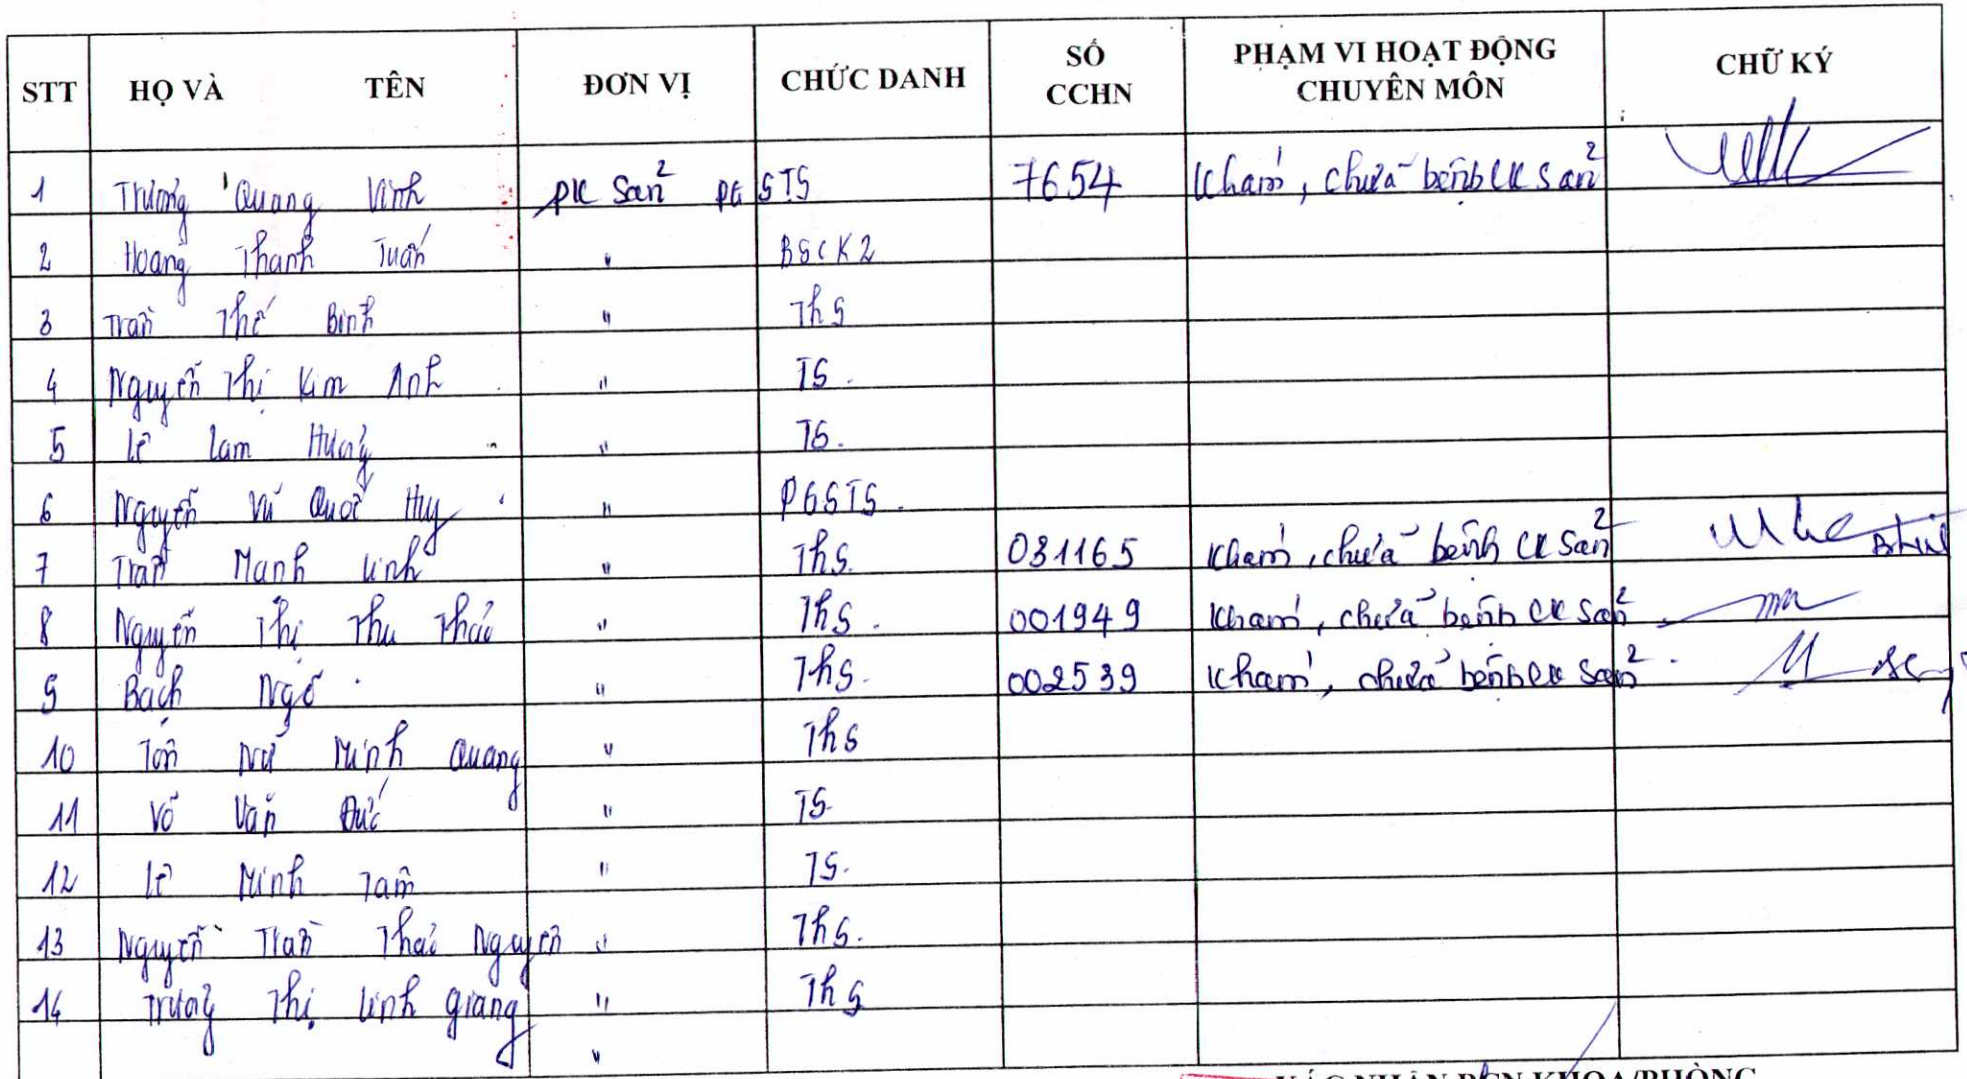 STT HỌ VÀ TÊN ĐƠN VỊ CHỨC DANH SỐ CCHN PHẠM VI HOẠT ĐỘNG CHUYÊN MÔN CHỮ KÝ
1 Trương Quang Vinh PK Sản PGSTS 7654 Khám, chữa bệnh CK Sản
2 Hoàng Thanh Tuấn " BSCK2
3 Trần Thế Bình " ThS
4 Nguyễn Thị Kim Anh " TS.
5 Lê Lam Hương " TS.
6 Nguyễn Vũ Quốc Huy " PGSTS.
7 Trần Mạnh Linh " ThS. 031165 Khám, chữa bệnh CK Sản
8 Nguyễn Thị Thu Thảo " ThS. 001949 Khám, chữa bệnh CK Sản
9 Bạch Ngõ " ThS. 002539 Khám, chữa bệnh CK Sản.
10 Tôn Nữ Minh Quang " ThS
11 Võ Văn Đức " TS.
12 Lê Minh Tâm " TS.
13 Nguyễn Trần Thảo Nguyên " ThS.
14 Trương Thị Linh Giang " ThS
"
XÁC NHẬN BCN KHOA/PHÒNG